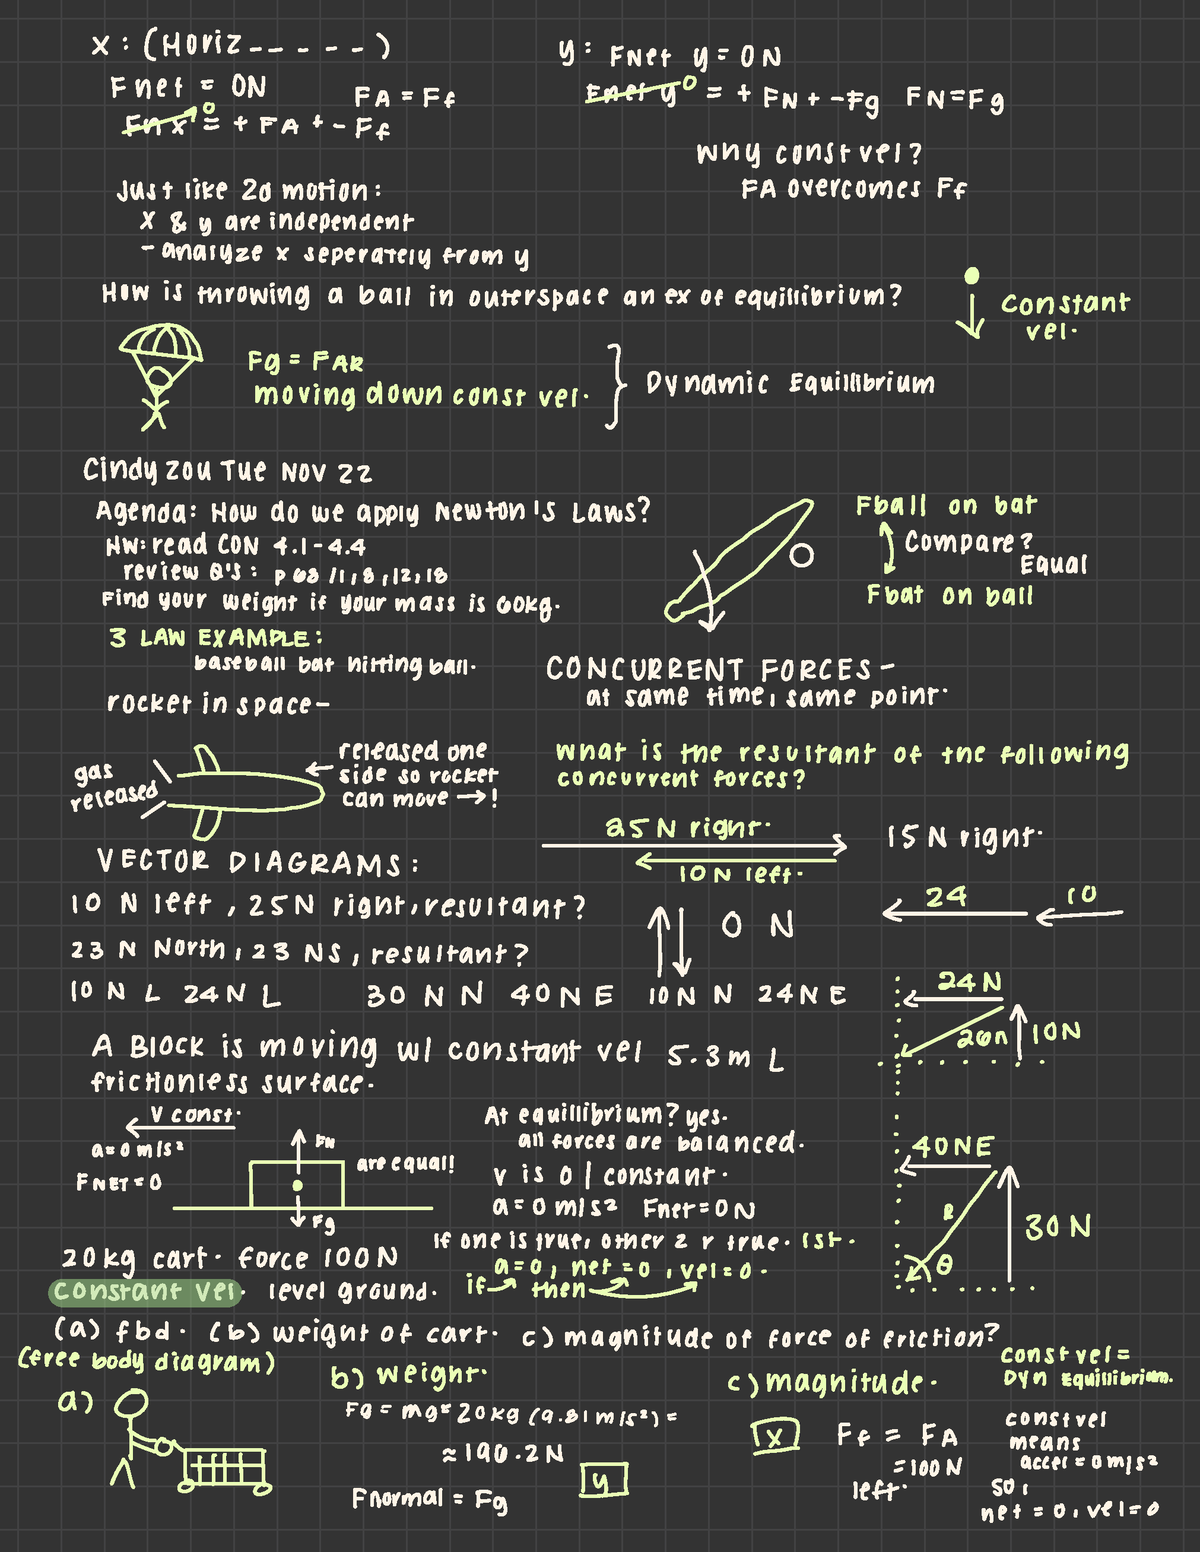 x: (Horiz-----)
Fnet = 0N
FA = Ff
Fn x 0 = + FA + - Ff
y: FNet y = 0N
Fnet y 0 = + FN + -Fg FN=Fg
why const vel?
FA overcomes Ff
Just like 2d motion:
x & y are independent
- analyze x seperately from y
How is throwing a ball in outerspace an ex of equillibrium?
Constant
vel.
Fg = FAR
moving down const vel.
Dynamic Equillibrium
Cindy zou Tue Nov 22
Agenda: How do we apply Newton's Laws?
HW: read CON 4.1-4.4
review Q's: p 68 /1, 8, 12, 18
Find your weight if your mass is 60kg.
3 LAW EXAMPLE:
baseball bat hitting ball.
Fball on bat
Compare?
Equal
Fbat on ball
rocket in space-
CONCURRENT FORCES-
at same time, same point.
gas
released
released one
side so rocket
can move →!
What is the resultant of the following
concurrent forces?
25N right.
10N left.
15N right.
VECTOR DIAGRAMS:
10 N left, 25N right, resultant?
0 N
24 10
23 N North, 23 NS, resultant?
10 N L 24N L 30 N N 40N E 10N N 24N E
24N
26n
10N
A Block is moving w/ constant vel 5.3m L
frictionless surface.
V const.
a=0m/s²
FNET=0
FN
are equal!
Fg
At equillibrium? yes.
all forces are balanced.
v is 0 | constant.
a=0m/s² Fnet=0N
If one is true, other 2 r true. 1st.
a=0, net=0, vel=0.
if then
40NE
R
θ
30N
20kg cart. force 100N
constant vel. level ground.
(a) fbd. (b) weight of cart. c) magnitude of force of friction?
(free body diagram)
a)
b) weight.
Fg = mg = 20kg (9.81m/s²) =
≈ 196.2N
Fnormal = Fg
y
c) magnitude.
x
Ff = FA
=100N
left.
const vel =
Dyn Equillibrium.
const vel
means
accel = 0m/s²
so,
net = 0, vel=0